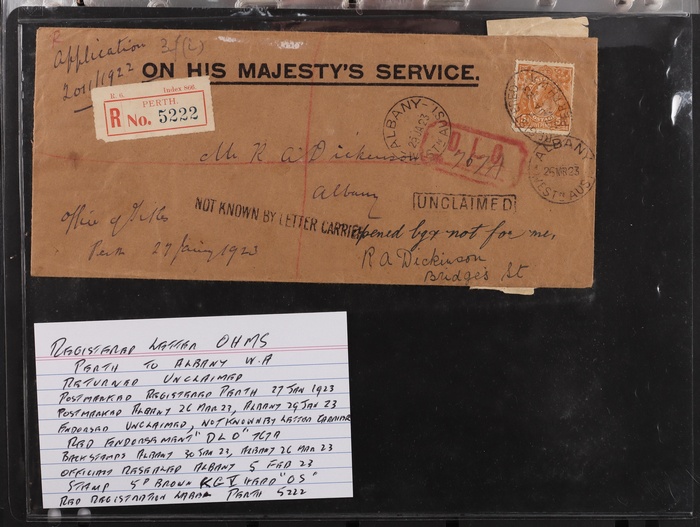 R
Application 3f(2)
2011/1922
ON HIS MAJESTY'S SERVICE.
R. 6. Index 800.
PERTH.
R No. 5222
ALBANY
29 JA 23
ALBANY
26 MR 23
WESTN AUST
D L O
767A
Mr R A Dickinson
Albany
UNCLAIMED
NOT KNOWN BY LETTER CARRIER
Office of Titles
Perth 27 Jany 1923
Opened by & not for me,
R A Dickinson
Bridges St
REGISTERED LETTER OHMS
PERTH TO ALBANY W.A
RETURNED UNCLAIMED
POSTMARKED REGISTERED PERTH 27 JAN 1923
POSTMARKED ALBANY 26 MAR 23, ALBANY 29 JAN 23
ENDORSED UNCLAIMED, NOT KNOWN BY LETTER CARRIER
RED ENDORSEMENT "DLO" 767A
BACKSTAMPS ALBANY 30 JAN 23, ALBANY 26 MAR 23
OFFICIALLY RESEALED ALBANY 5 FEB 23
STAMP 5D BROWN KGV HEAD "OS"
RED REGISTRATION LABEL PERTH 5222